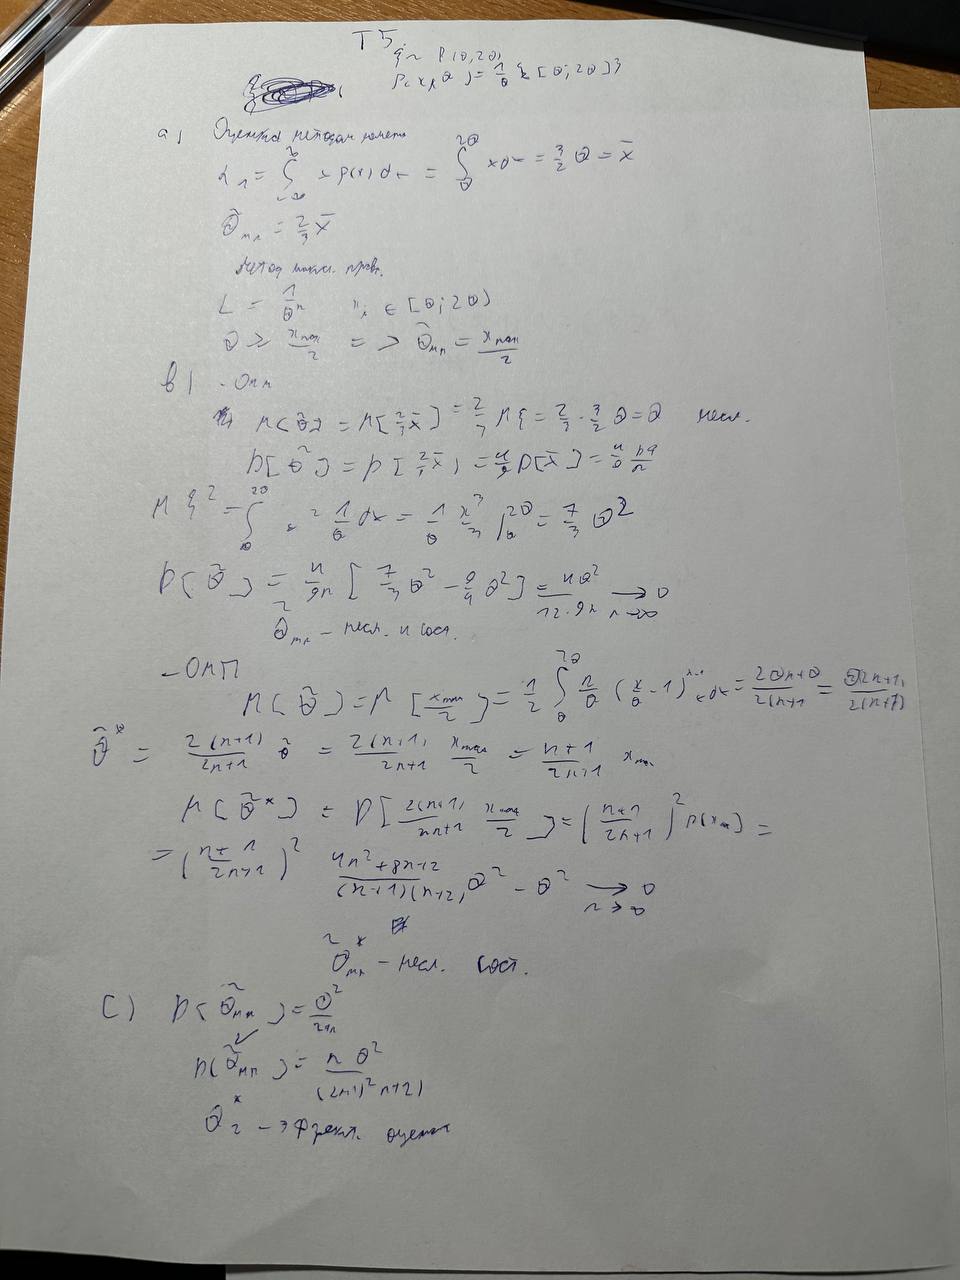 T5
ξ ~ R(θ, 2θ)
p(x, θ) = 1/θ {[θ; 2θ]}
a) Оценка методом момент
α₁ = ∫ x p(x) dx = ∫_θ^{2θ} x dx = 3/2 θ = x̄
θ̃ₘₘ = 2/3 x̄
Метод макс. правд.
L = 1/θⁿ xᵢ ∈ [θ; 2θ)
θ ≥ xmax/2 => θ̃ₘₙ = xmax/2
b) - ОММ
M[θ̃] = M[2/3 x̄] = 2/3 Mξ = 2/3 · 3/2 θ = θ несм.
D[θ̃] = D[2/3 x̄] = 4/9 D[x̄] = 4/9 Dξ/n
Mξ² = ∫_θ^{2θ} x² 1/θ dx = 1/θ x³/3 |_θ^{2θ} = 7/3 θ²
D[θ̃] = 4/9n [7/3 θ² - 9/4 θ²] = 4θ²/12·9n → 0 n→∞
θ̃ₘₘ - несм. и сост.
- ОМП
M[θ̃] = M[xmax/2] = 1/2 ∫_θ^{2θ} n/θ (x/θ - 1)^{n-1} x dx = 2θn+θ/2(n+1 = θ2n+1)/2(n+1)
θ̃* = 2(n+1)/2n+1 θ̃ = 2(n+1)/2n+1 xmax/2 = n+1/2n+1 xmax
M[θ̃*] = D[2(n+1)/2n+1 xmax/2] = (n+1/2n+1)² D[xm] =
= (n+1/2n+1)² 4n²+8n+2/(n+1)(n+2) θ² - θ² → 0 n→∞
θ̃*ₘₙ - несм. сост.
C) D[θ̃ₘₘ] = θ²/27n
D[θ̃ₘₙ] = n θ²/(2n+1)² n+2)
θ̃₂* - эффект. оценка